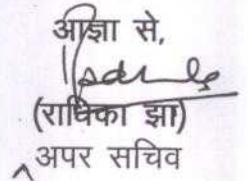 आज्ञा से,
(राधिका झा)
अपर सचिव